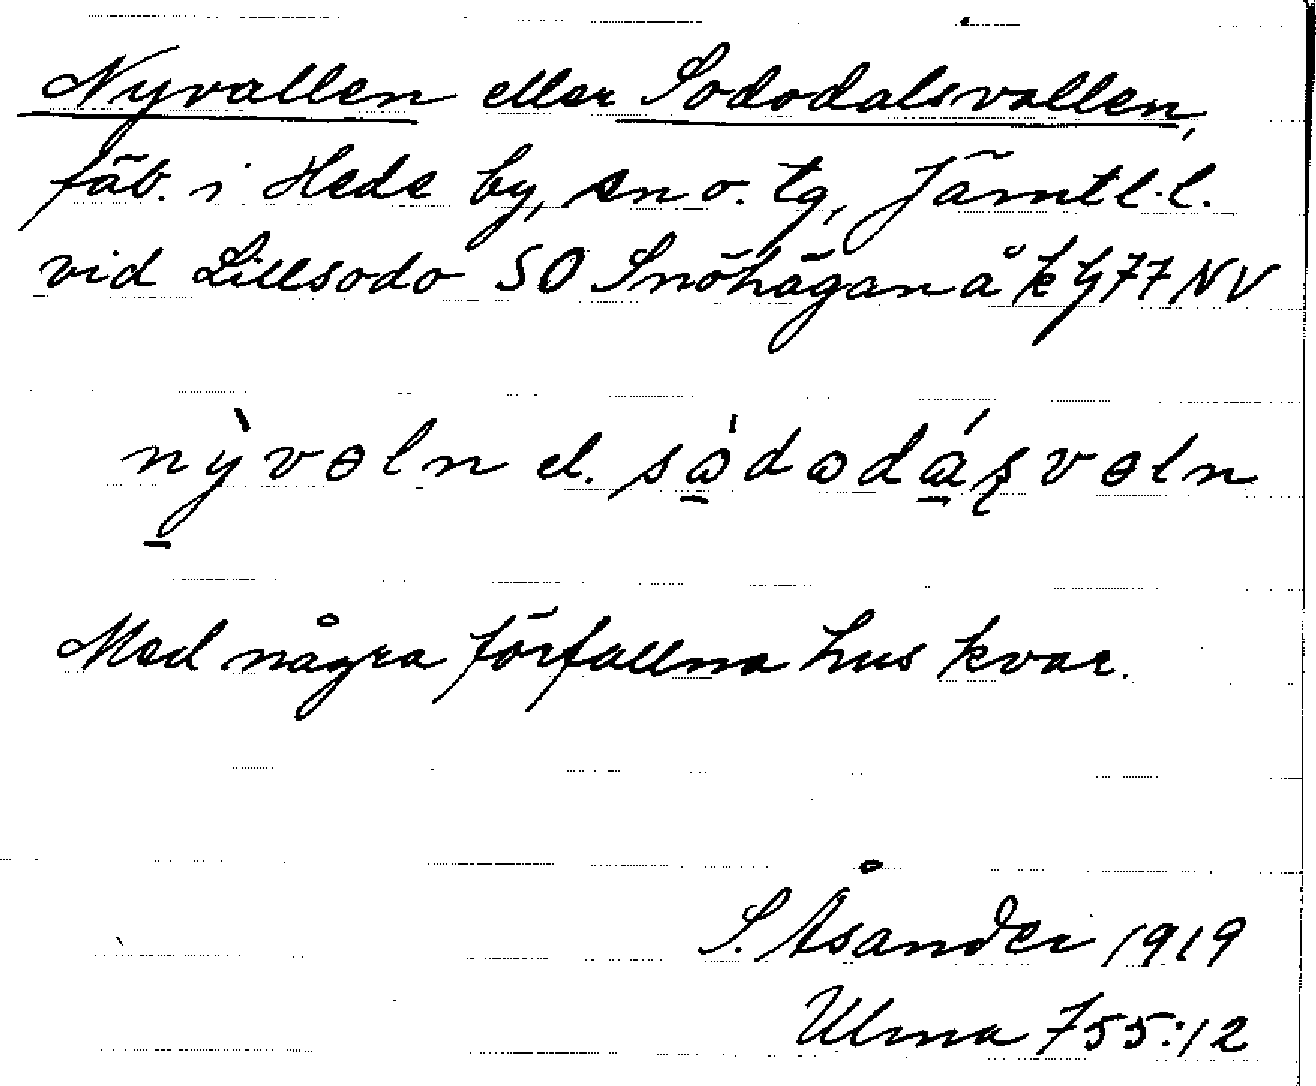 Nyvallen eller Sododalsvallen,
fäb. i Hede by, sn o. tg, Jämtl.l.
vid Lillsodo SO Snöhågan å k G 77 NV
nỳvɵln el. sὰdωdάʂvɵln
Med några förfallna hus kvar.
S. Åsander 1919
Ulma 755:12